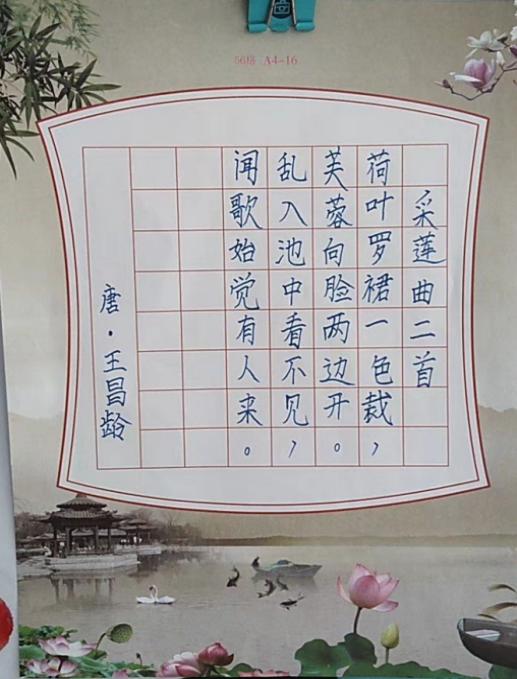 56格 A4-16
采莲曲二首
荷叶罗裙一色裁，
芙蓉向脸两边开。
乱入池中看不见，
闻歌始觉有人来。
唐·王昌龄